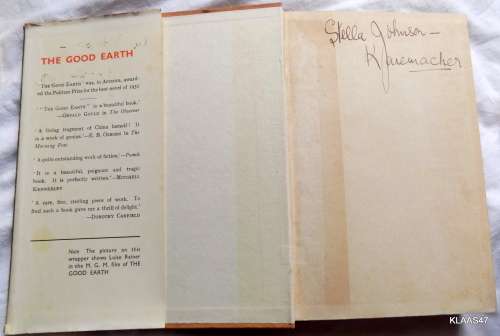 THE GOOD EARTH
'THE GOOD EARTH' was, in America, award-
ed the Pulitzer Prize for the best novel of 1931
'"THE GOOD EARTH" is a beautiful book.'
—GERALD GOULD in The Observer
'A living fragment of China herself! It
is a work of genius.'—E. B. OSBORN in The
Morning Post
'A quite outstanding work of fiction.'—Punch
'It is a beautiful, poignant and tragic
book. It is perfectly written.'—MITCHELL
KENNERLEY
'A rare, fine, sterling piece of work. To
find such a book gave me a thrill of delight.'
—DOROTHY CANFIELD
Note The picture on this
wrapper shows Luise Rainer
in the M. G. M. film of THE
GOOD EARTH
Stella Johnson —
KLAAS47